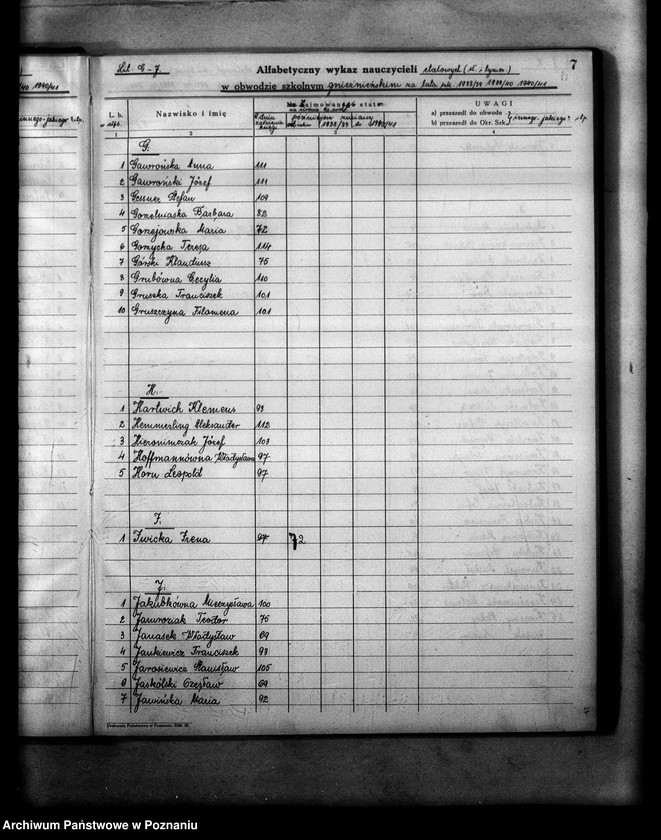 40 1940/41
innego-jakiego? i t.p.
Lit. G-J.
Alfabetyczny wykaz nauczycieli etatowych (st. i tymcz.)
7
w obwodzie szkolnym gnieźnieńskim na lata szk. 1938/39 1939/40 1940/41
L. b.
Nazwisko i imię
UWAGI
a) przeszedł do obwodu
b) przeszedł do Okr. Szk.
innego-jakiego? i t.p.
1 2 3 4
G.
1 Gawrońska Anna 111
2 Gawroński Józef 111
3 Gessner Stefan 109
4 Barbara 82
5 Maria 72
6 Gorzycka Teresa 114
7 Górski Klaudiusz 75
8 Grubówna Cecylia 110
9 Gruszka Franciszek 101
10 Gruszczyna Filomena 101
H.
1 Hartwich Klemens 93
2 Hemmerling Aleksander 112
3 Hieronimczak Józef 103
4 Hoffmannówna Władysława 97
5 Horn Leopold 97
I.
1 Iwicka Irena 97 72
J.
1 Jakubkówna Mieczysława 100
2 Jamroziak Teodor 75
3 Janasek Władysław 69
4 Jankiewicz Franciszek 93
5 Jarosiewicz Stanisław 105
6 Jaskólski Czesław 69
7 Jawińska Maria 92
Drukarnia Państwowa w Poznaniu
Archiwum Państwowe w Poznaniu